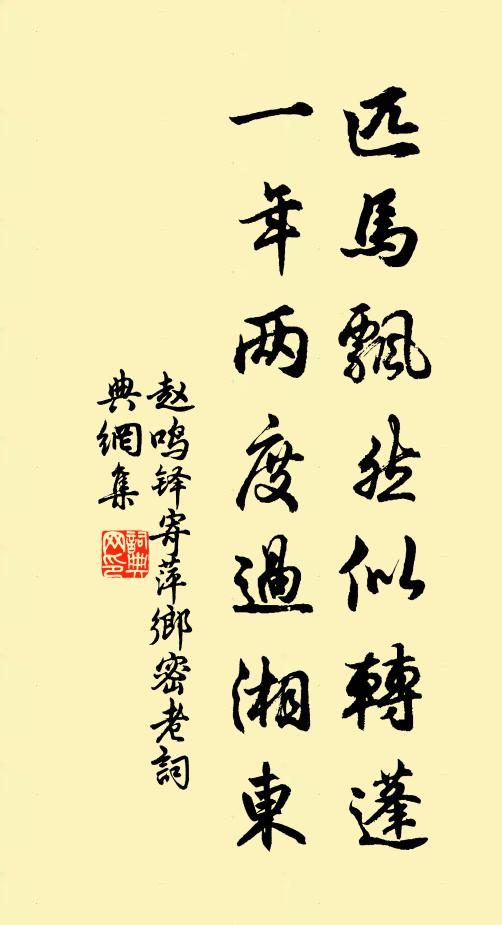 匹馬飄然似轉蓬
一年两度過湘東
赵鸣铎寄萍鄉密老詞
典網集
詞典
网印